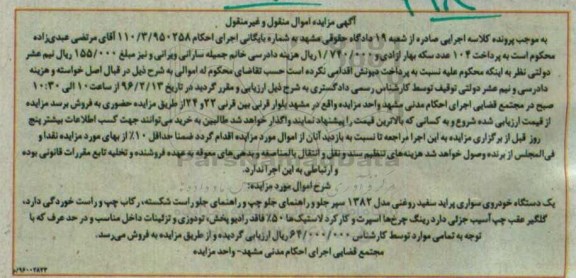 آگهی مزایده اموال منقول و غیرمنقول
به موجب پرونده کلاسه اجرایی صادره از شعبه ۱۹ دادگاه حقوقی مشهد به شماره بایگانی اجرای احکام ۱۱۰/۳/۹۵۰۲۵۸ آقای مرتضی عبدی‌زاده
محکوم است به پرداخت ۱۰۴ عدد سکه بهار آزادی و ۱/۷۷۰/۰۰۰ ریال هزینه دادرسی خانم جمیله سارانی ویرانی و نیز مبلغ ۱۵۵/۰۰۰ ریال نیم عشر
دولتی نظر به اینکه محکوم علیه نسبت به پرداخت دیونش اقدامی نکرده است حسب تقاضای محکوم له اموالی به شرح ذیل در قبال اصل خواسته و هزینه
دادرسی و نیم عشر دولتی توقیف توسط کارشناس رسمی دادگستری به شرح ذیل ارزیابی و مقرر گردید در تاریخ ۹۶/۲/۱۳ از ساعت ۱۰ الی ۱۰:۳۰
صبح در مجتمع قضایی اجرای احکام مدنی مشهد واحد مزایده واقع در مشهد بلوار قرنی بین قرنی ۲۲ و ۲۴ از طریق مزایده حضوری به فروش برسد مزایده
از قیمت ارزیابی شده شروع و به کسانی که بالاترین قیمت را پیشنهاد نمایند واگذار خواهد شد طالبین به خرید می‌توانند جهت کسب اطلاعات بیشتر پنج
روز قبل از برگزاری مزایده به این اجرا مراجعه تا نسبت به بازدید آنان از اموال مورد مزایده اقدام گردد ضمنا حداقل ۱۰٪ از بهای مورد مزایده نقدا و
فی‌المجلس از برنده وصول خواهد شد هزینه‌های تنظیم سند و نقل و انتقال بالمناصفه و بدهی‌های معوقه به عهده فروشنده و تخلیه تابع مقررات قانونی بوده
و ارتباطی به این اجرا ندارد.
شرح اموال مورد مزایده:
یک دستگاه خودروی سواری پراید سفید روغنی مدل ۱۳۸۲ سپر جلو و راهنمای جلو چپ و راهنمای جلو راست شکسته، رکاب چپ و راست خوردگی دارد،
گلگیر عقب چپ آسیب جزئی دارد رینگ چرخ‌ها اسپرت و کارکرد لاستیک‌ها ۵۰٪ فاقد رادیو پخش، تودوزی و تزئینات داخل مناسب و در حد عرف که با
توجه به تمامی موارد توسط کارشناس ۶۴/۰۰۰/۰۰۰ ریال ارزیابی گردیده و از طریق مزایده به فروش می‌رسد.
مجتمع قضایی اجرای احکام مدنی مشهد- واحد مزایده
۹۶۰۰۲۸۲۲/م